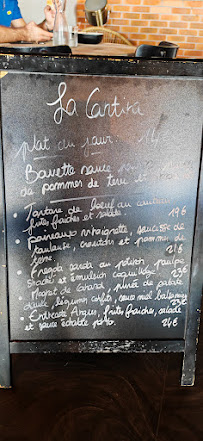 La Cantina
plat du jour 16€
Bavette sauce
de pommes de terre et
• Tartare de bœuf au couteau
frites fraîches et salade. 19€
• poireaux vinaigrette, saucisse de
toulouse, et pommes de
terre. 21€
• Fregola sarda au poulpe
et émulsion coquillage 23€
• Magret de canard, purée de patate
douce, légumes confits, sauce miel balsamique
23€
• Entrecote Angus, frites fraîches, salade
et sauce porto. 24€